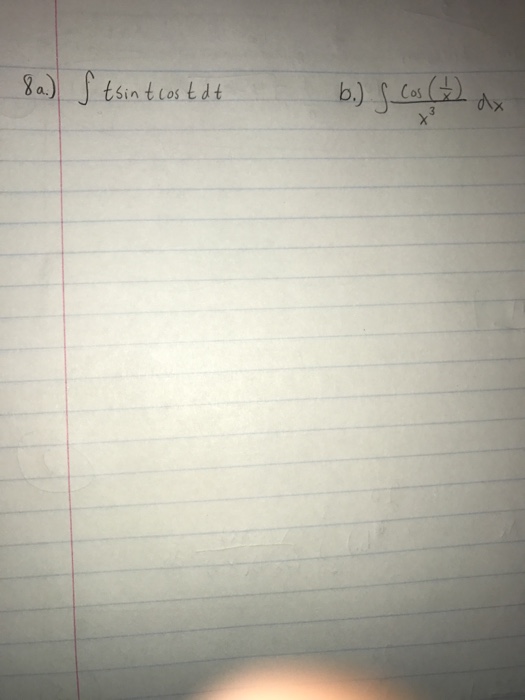 8a.) ∫ t sin t cos t dt b.) ∫ cos(1/x)/x³ dx